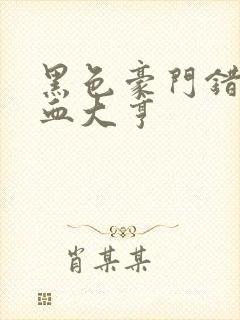 黑色豪門錯
血大亨
肖某某